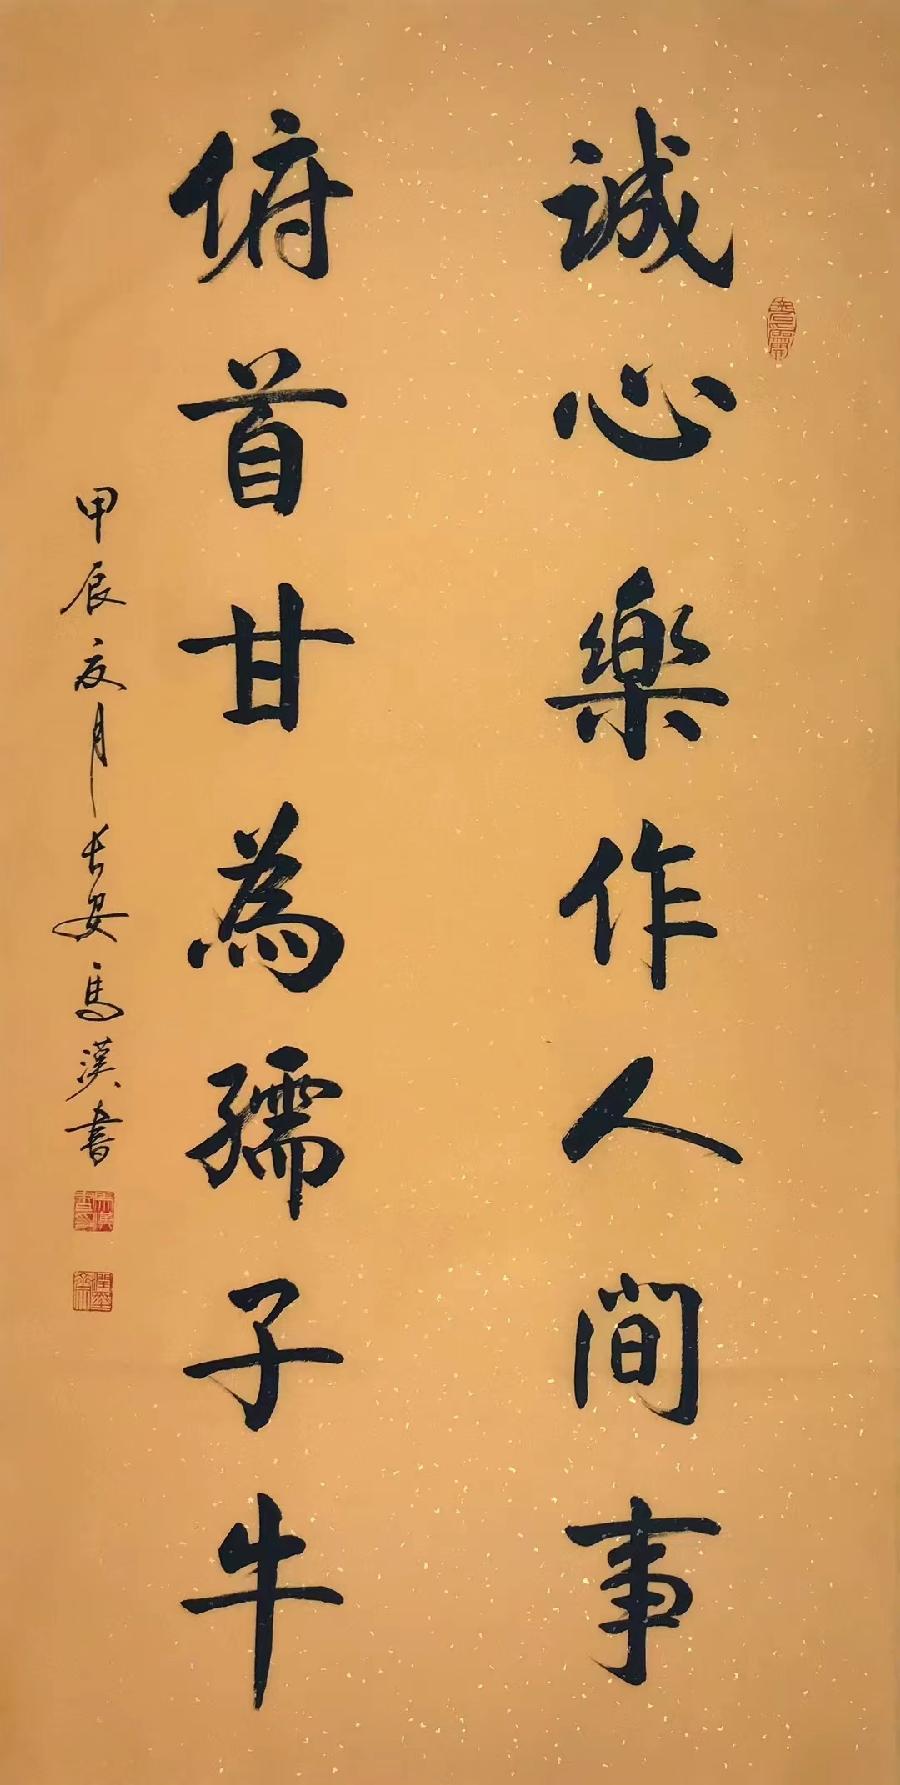 誠心樂作人間事
俯首甘為孺子牛
甲辰夏月長安馬漢書